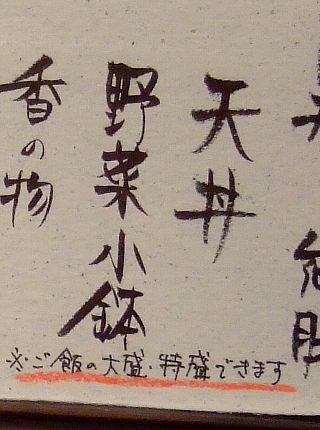 天丼
野菜小鉢
香の物
※ご飯の大盛・特盛できます